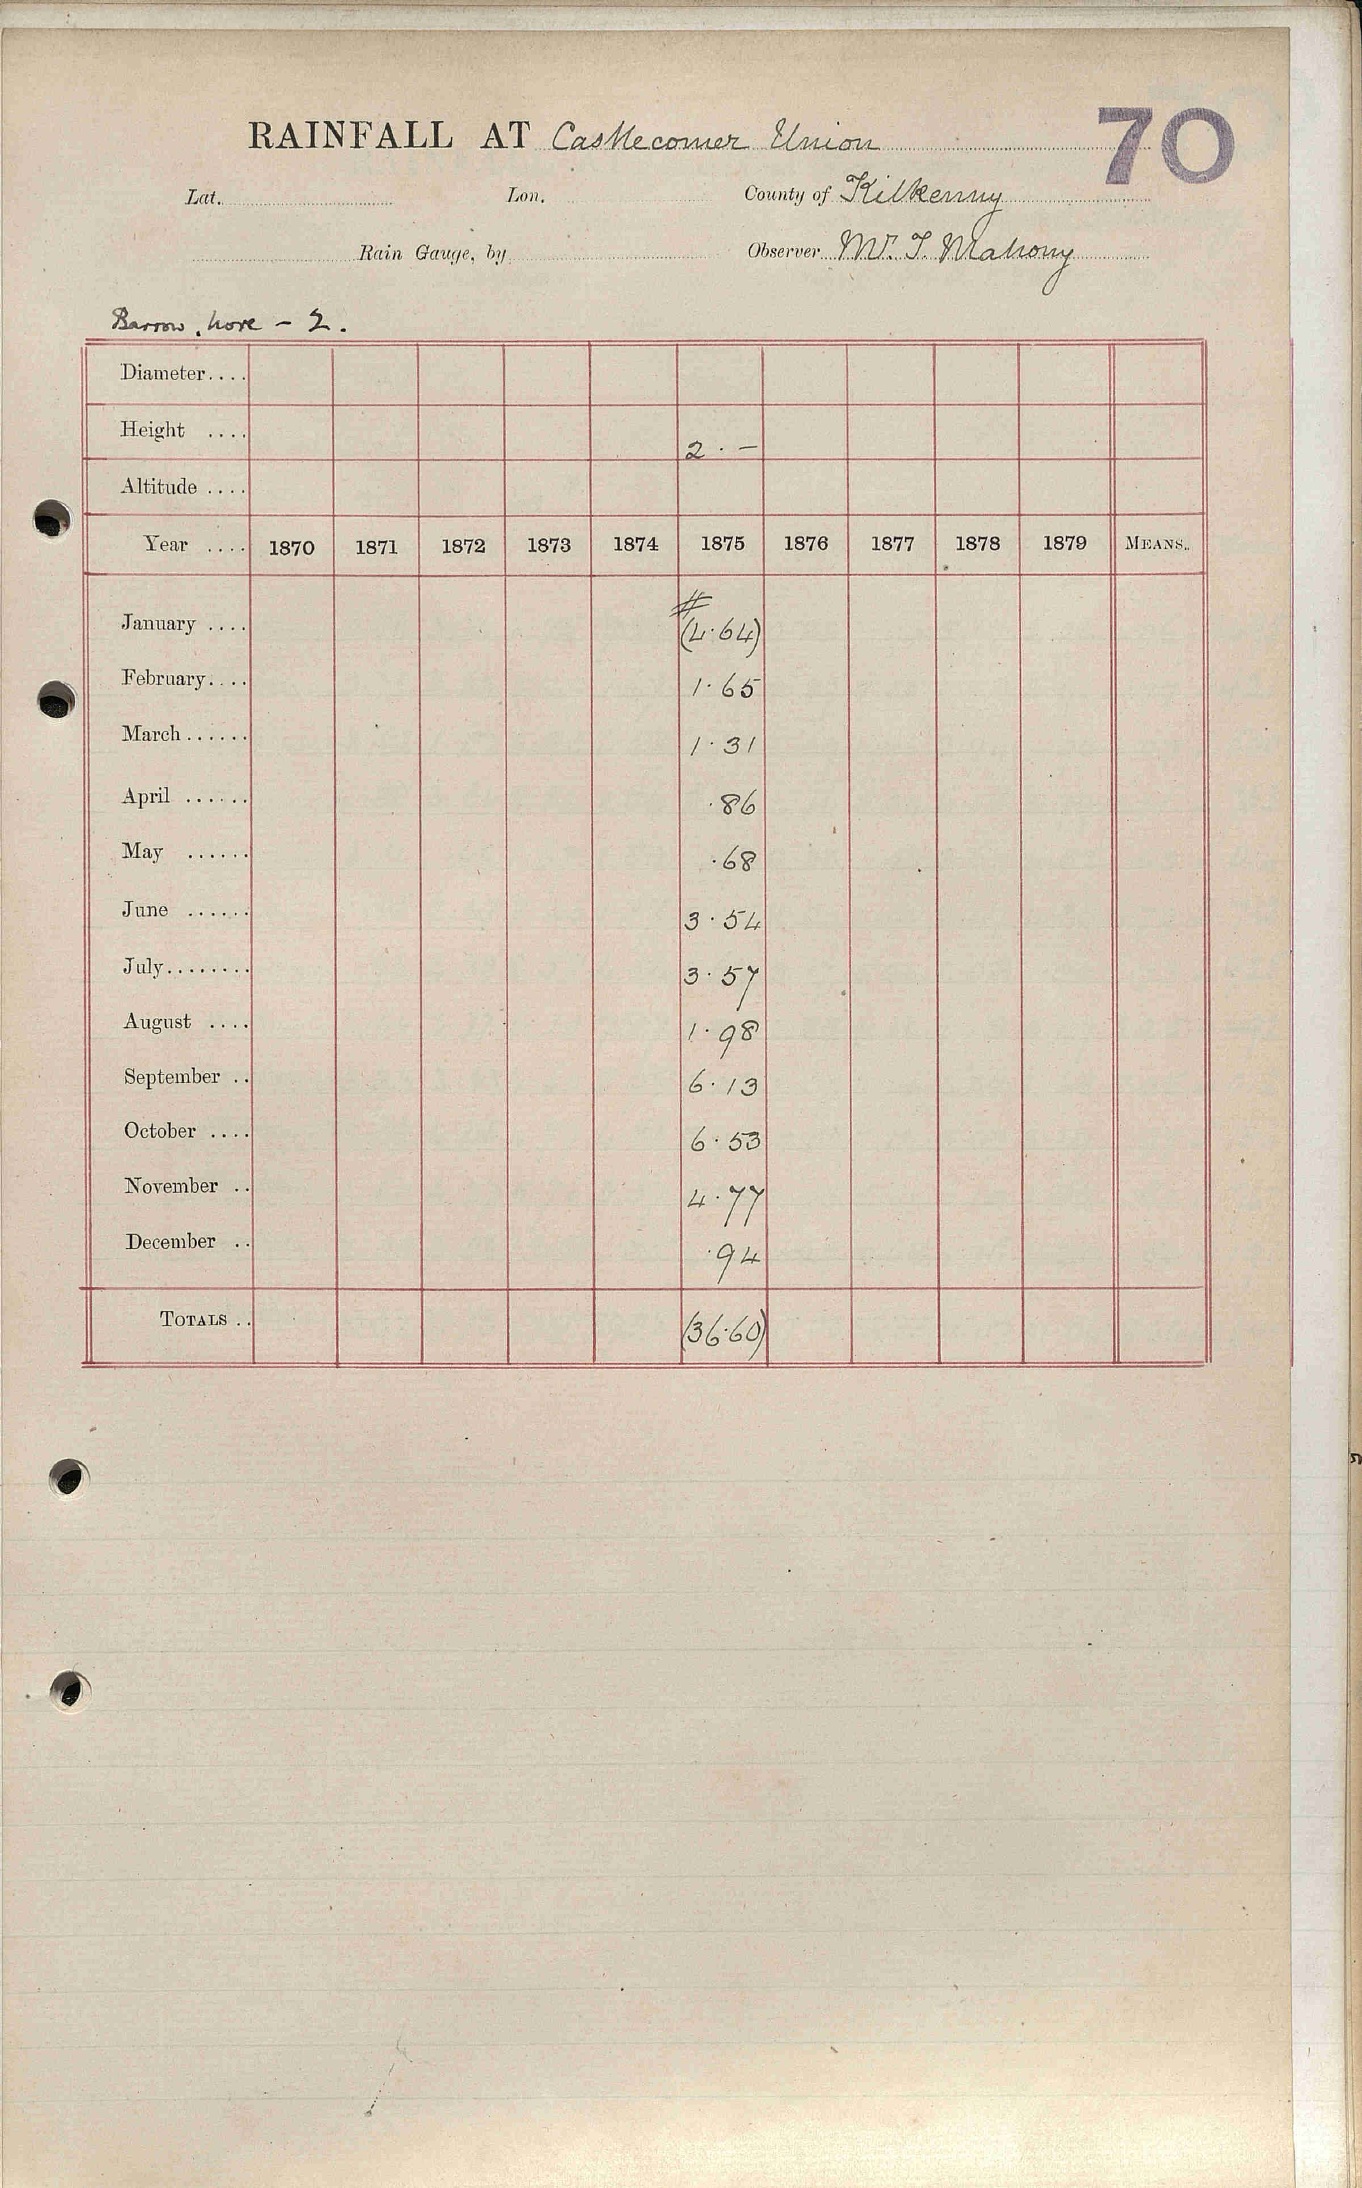 RAINFALL AT Castlecomer Union 70
Lat. Lon. County of Kilkenny
Rain Gauge, by Observer Mr. T. Mahony
Barrow, Nore – 2.
Diameter....
Height .... 2 · –
Altitude ....
Year .... 1870 1871 1872 1873 1874 1875 1876 1877 1878 1879 MEANS..
January .... # (4·64)
February.... 1·65
March...... 1·31
April ...... ·86
May ...... ·68
June ...... 3·54
July........ 3·57
August .... 1·98
September .. 6·13
October .... 6·53
November .. 4·77
December .. ·94
TOTALS .. (36·60)